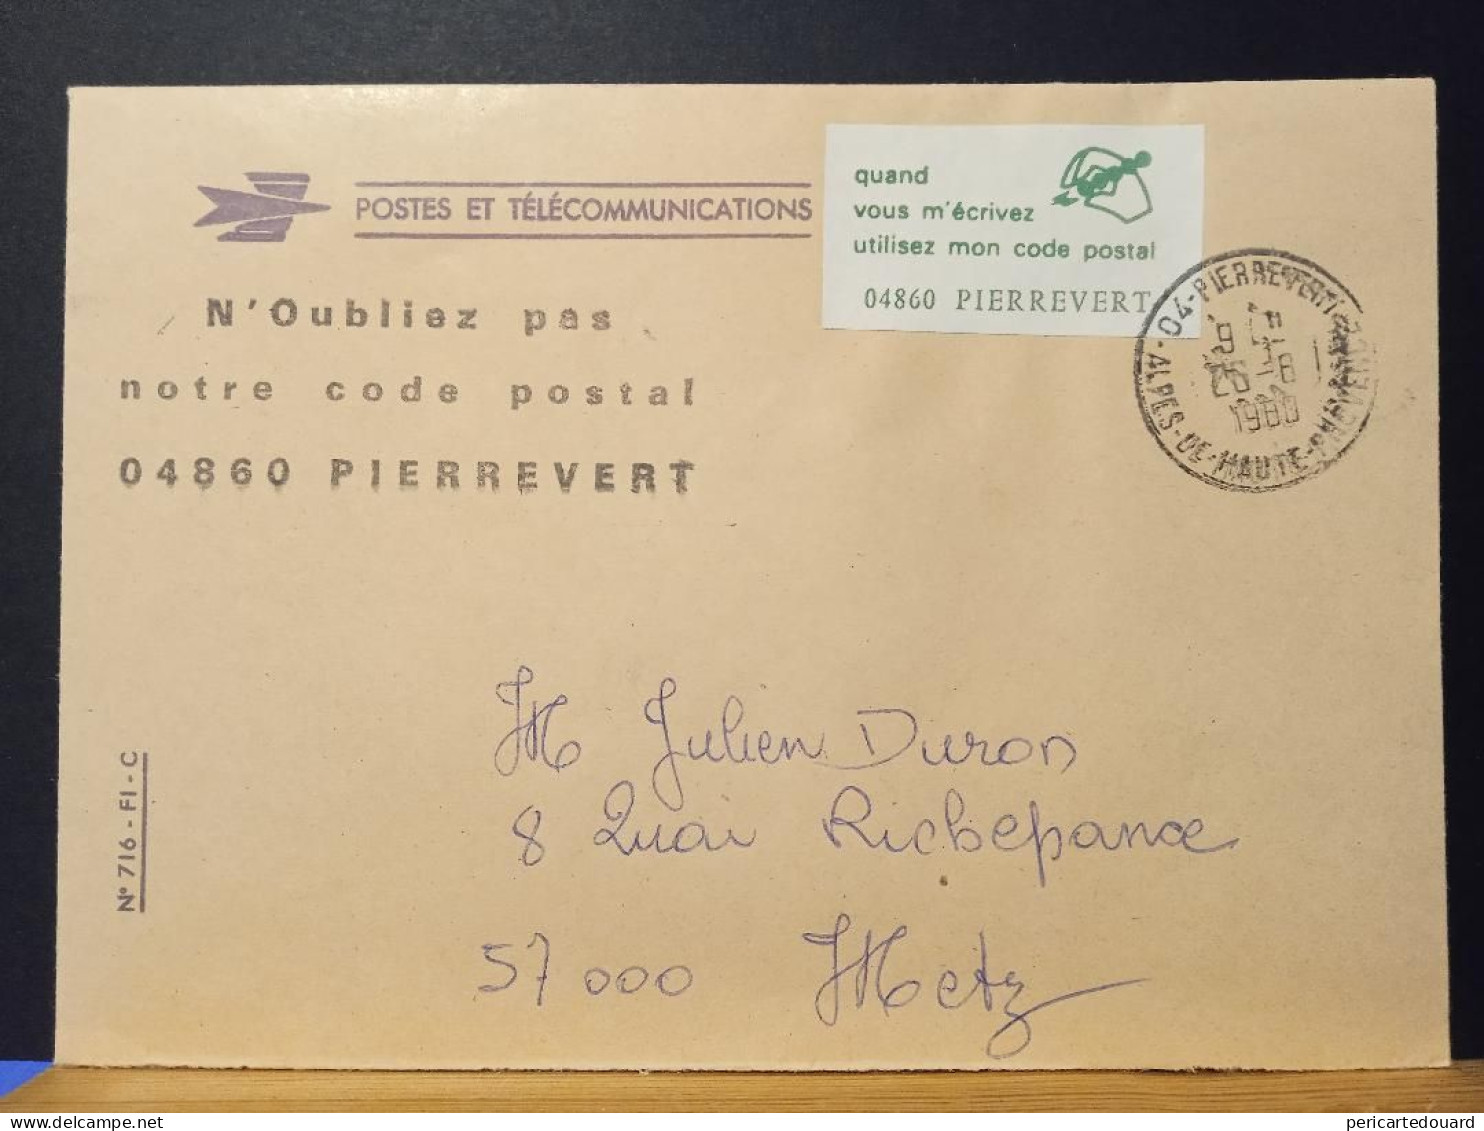 POSTES ET TÉLÉCOMMUNICATIONS
quand
vous m'écrivez
utilisez mon code postal
04860 PIERREVERT
04-PIERREVERT
26-8
1980
ALPES-DE-HAUTE-PROVENCE
N'Oubliez pas
notre code postal
04860 PIERREVERT
M Julien Duron
8 Quai Richepance
57000 Metz
N° 716 - FI - C
delcampe.net
pericartedouard